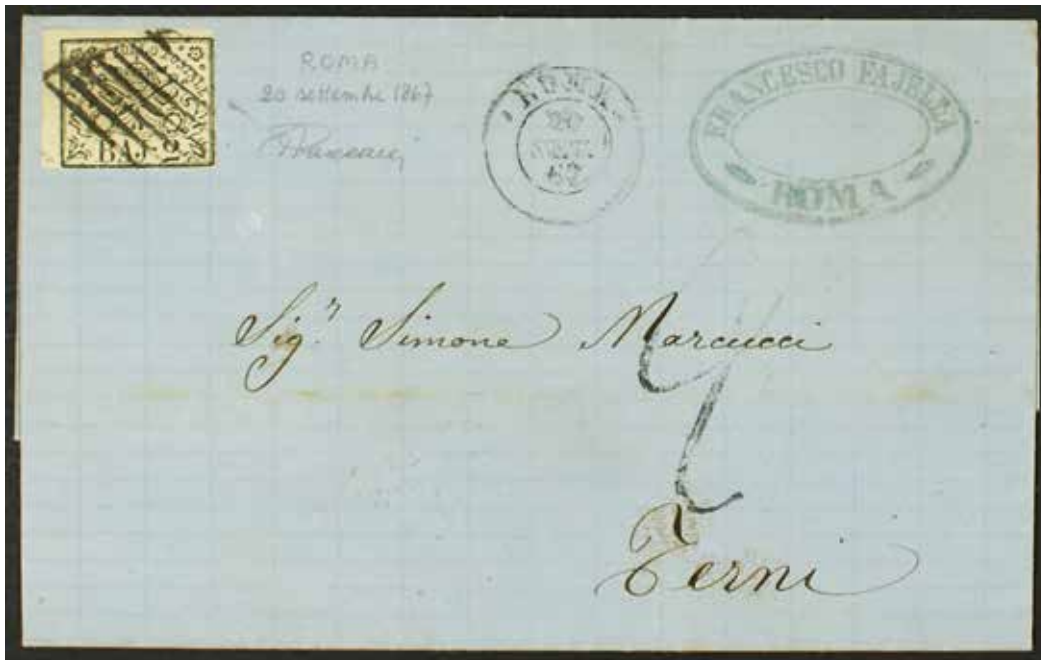 BAJ. 2
ROMA
20 settembre 1867
ROMA
20
SETT.
67
FRANCESCO FAJELLA
ROMA
Sig.r Simone Marcucci
Terni